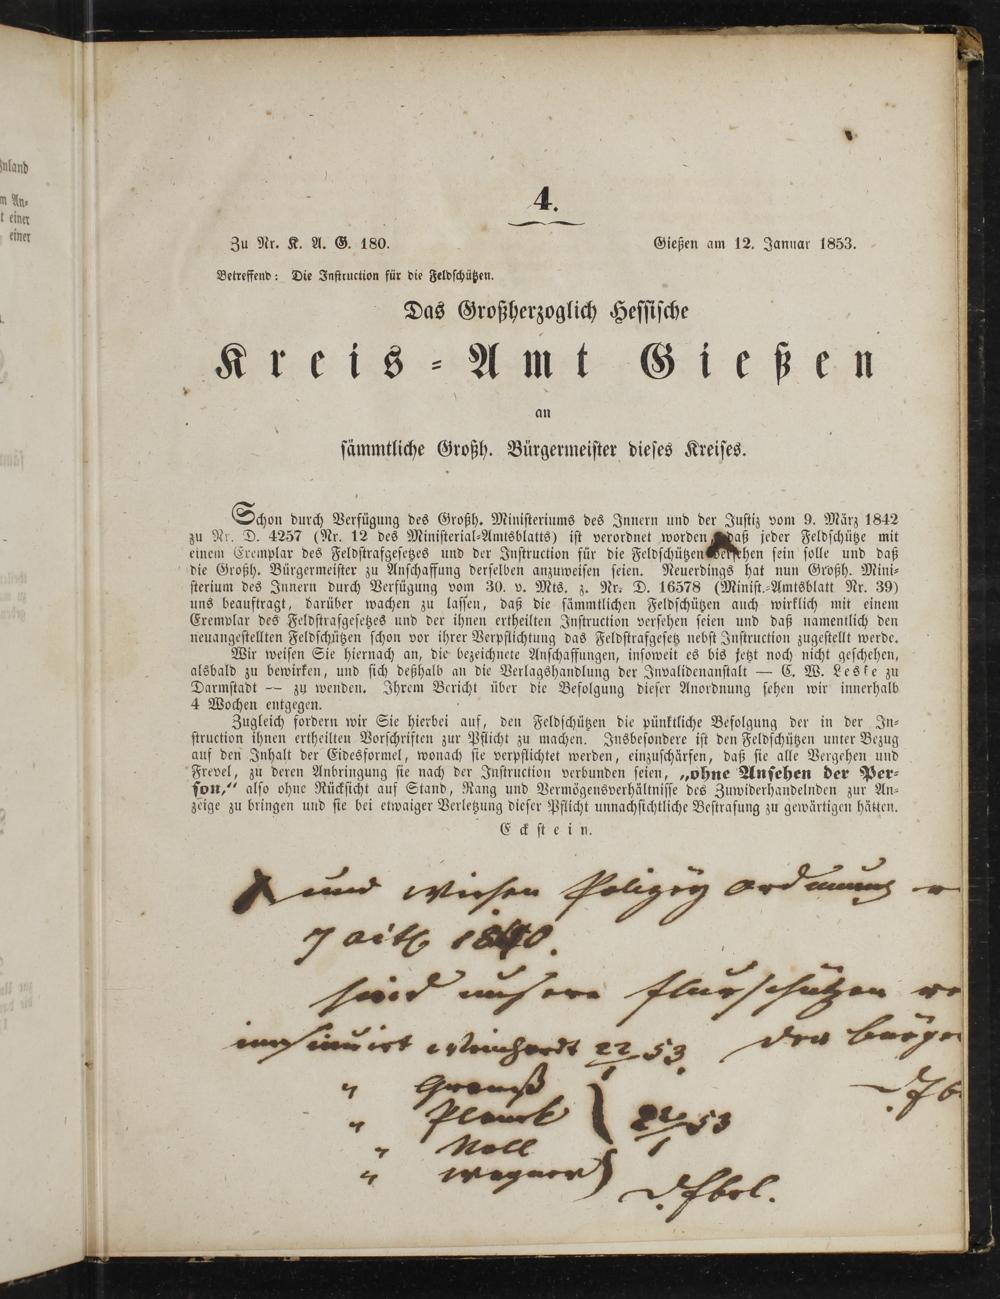 4.
Zu Nr. K. A. G. 180.
Gießen am 12. Januar 1853.
Betreffend: Die Instruction für die Feldschützen.
Das Großherzoglich Hessische
Kreis-Amt Gießen
an
sämmtliche Großh. Bürgermeister dieses Kreises.
Schon durch Verfügung des Großh. Ministeriums des Innern und der Justiz vom 9. März 1842
zu Nr. D. 4257 (Nr. 12 des Ministerial-Amtsblatts) ist verordnet worden, daß jeder Feldschütze mit
einem Exemplar des Feldstrafgesetzes und der Instruction für die Feldschützen versehen sein solle und daß
die Großh. Bürgermeister zu Anschaffung derselben anzuweisen seien. Neuerdings hat nun Großh. Mini-
sterium des Innern durch Verfügung vom 30. v. Mts. z. Nr. D. 16578 (Minist.-Amtsblatt Nr. 39)
uns beauftragt, darüber wachen zu lassen, daß die sämmtlichen Feldschützen auch wirklich mit einem
Exemplar des Feldstrafgesetzes und der ihnen ertheilten Instruction versehen seien und daß namentlich den
neuangestellten Feldschützen schon vor ihrer Verpflichtung das Feldstrafgesetz nebst Instruction zugestellt werde.
Wir weisen Sie hiernach an, die bezeichnete Anschaffungen, insoweit es bis jetzt noch nicht geschehen,
alsbald zu bewirken, und sich deßhalb an die Verlagshandlung der Invalidenanstalt — C. W. Leske zu
Darmstadt — zu wenden. Ihrem Bericht über die Befolgung dieser Anordnung sehen wir innerhalb
4 Wochen entgegen.
Zugleich fordern wir Sie hierbei auf, den Feldschützen die pünktliche Befolgung der in der In-
struction ihnen ertheilten Vorschriften zur Pflicht zu machen. Insbesondere ist den Feldschützen unter Bezug
auf den Inhalt der Eidesformel, wonach sie verpflichtet werden, einzuschärfen, daß sie alle Vergehen und
Frevel, zu deren Anbringung sie nach der Instruction verbunden seien, „ohne Ansehen der Per-
son,“ also ohne Rücksicht auf Stand, Rang und Vermögensverhältnisse des Zuwiderhandelnden zur An-
zeige zu bringen und sie bei etwaiger Verletzung dieser Pflicht unnachsichtliche Bestrafung zu gewärtigen hätten.
Eckstein.
und Wiesen Polizey Ordnung
18
sind unsere Flurschützen
insinuirt Weinhardt 22/1 53. der Bürge
"
" Plank 22/1 53
" Noll
" Wagner